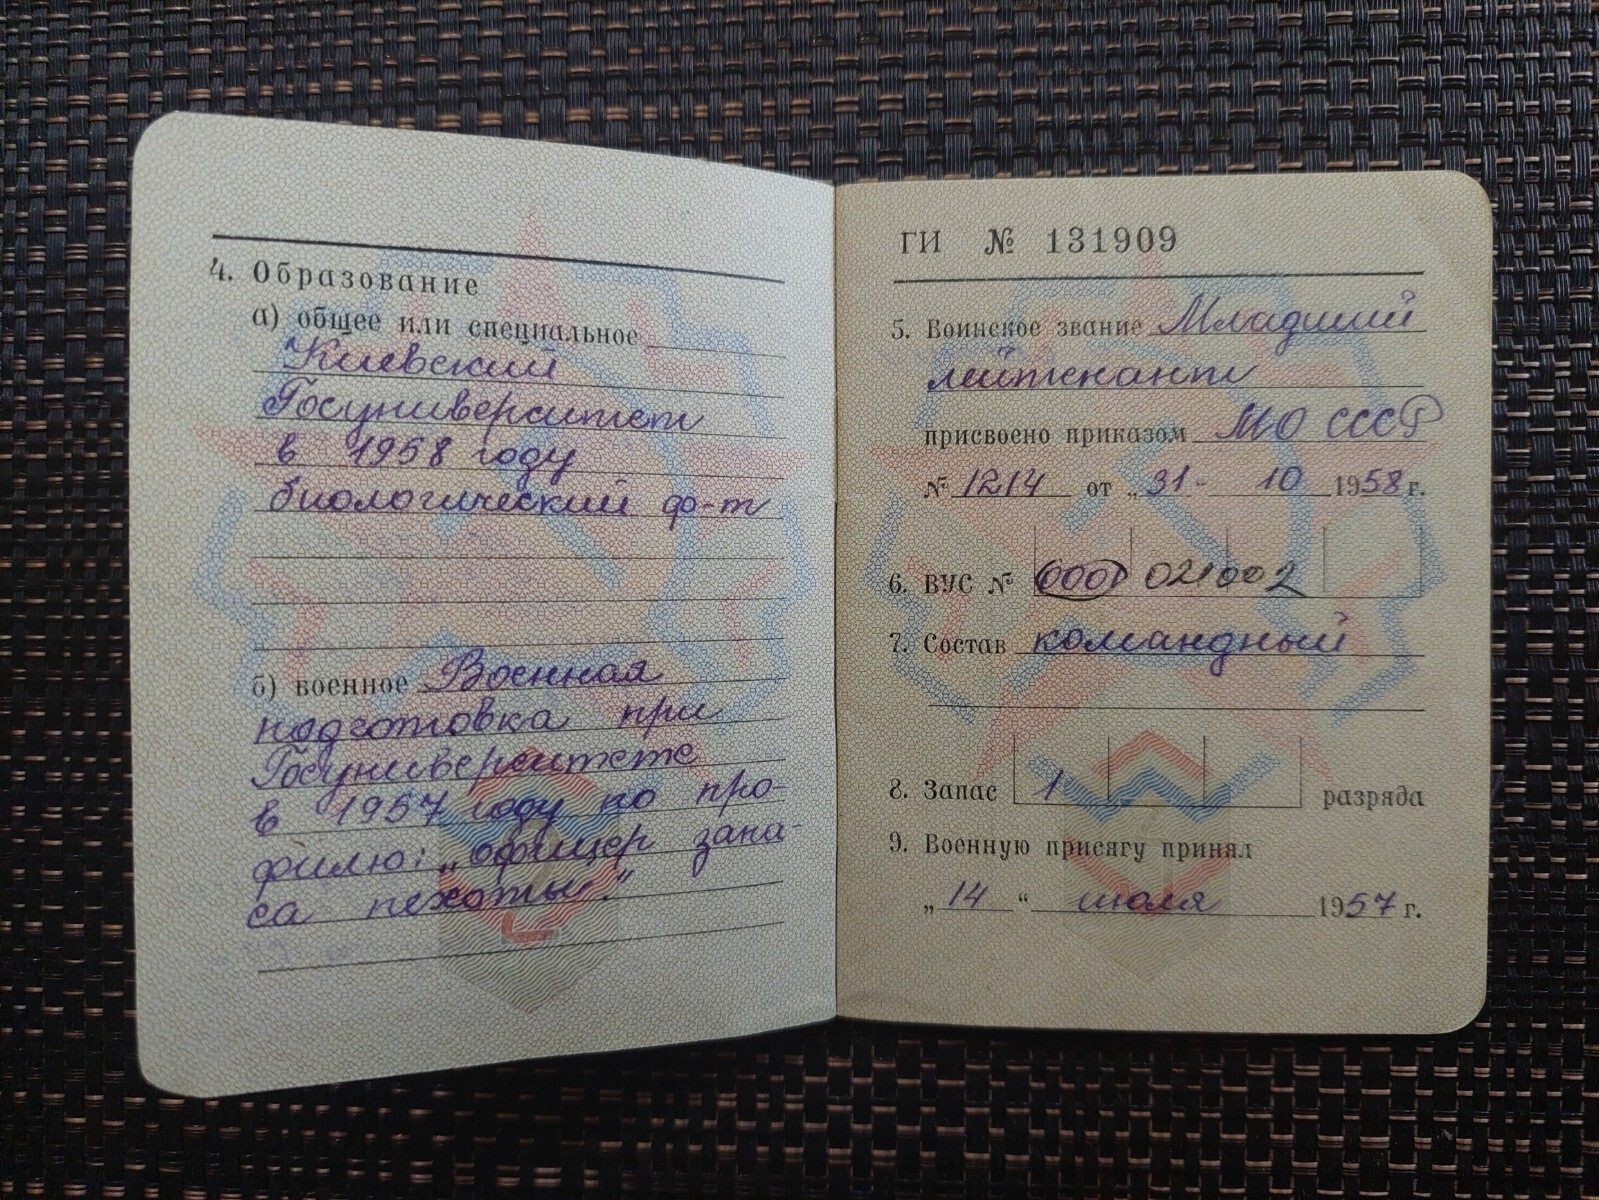 4. Образование
а) общее или специальное
Киевский
Госуниверситет
в 1958 году
биологический ф-т
б) военное Военная
подготовка при
Госуниверситете
в 1957 году по про-
филю: „офицер запа-
са пехоты."
ГИ № 131909
5. Воинское звание Младший
лейтенант
присвоено приказом МО СССР
№ 1214 от „31" 10 1958 г.
6. ВУС № 0001 021002
7. Состав командный
8. Запас 1 разряда
9. Военную присягу принял
„14“ июля 1957 г.